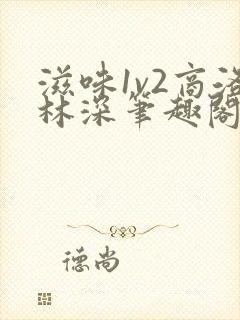 滋味1v2高洛
林深笔趣阁
德尚